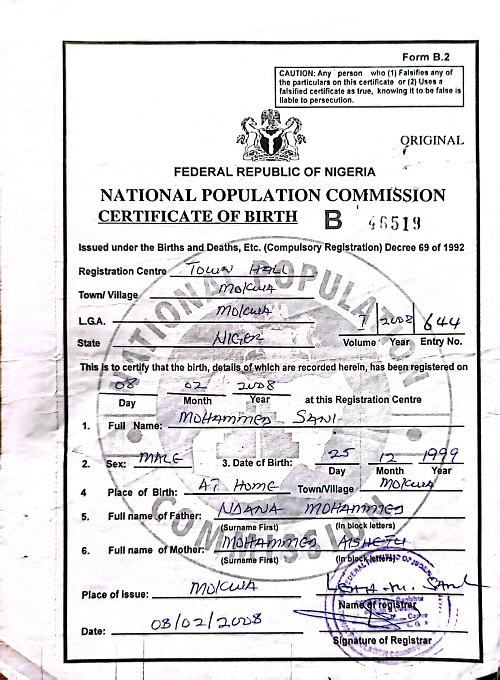 Form B.2
CAUTION: Any person who (1) Falsifies any of
the particulars on this certificate or (2) Uses a
falsified certificate as true, knowing it to be false is
liable to persecution.
ORIGINAL
FEDERAL REPUBLIC OF NIGERIA
NATIONAL POPULATION COMMISSION
CERTIFICATE OF BIRTH B 46519
Issued under the Births and Deaths, Etc. (Compulsory Registration) Decree 69 of 1992
Registration Centre TOWN HALL
Town/ Village MOKWA
L.G.A. MOKWA 7 2008 644
State NIGER Volume Year Entry No.
This is to certify that the birth, details of which are recorded herein, has been registered on
08 02 2008 at this Registration Centre
Day Month Year
1. Full Name: MOHAMMED SANI
2. Sex: MALE 3. Date of Birth: 25 12 1999
Day Month Year
4 Place of Birth: AT HOME Town/Village MOKWA
5. Full name of Father: NDANA MOHAMMED
(Surname First) (In block letters)
6. Full name of Mother: MOHAMMED AISHETU
(Surname First) (In block letters)
Place of issue: MOKWA
Name of registrar
Date: 08/02/2008
Signature of Registrar
NATIONAL POPULATION COMMISSION